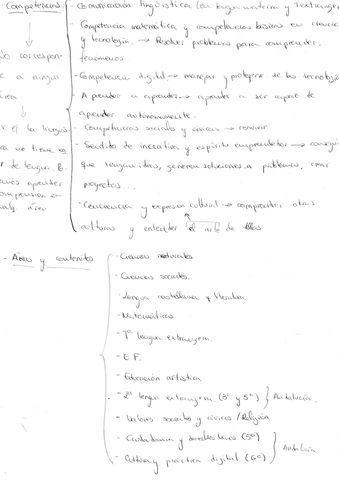 - Competencias:
- Comunicación lingüística (en lengua materna y extranjera
- Competencia matemática y competencias básicas en ciencia
y tecnología. → Resolver problemas para comprender
fenómenos
- Competencia digital → manejar y protegerse de las tecnolog
- Aprender a aprender → aprender a ser capaz de
aprender autónomamente.
- Competencias sociales y cívicas → convivir
- Sentido de iniciativa y espíritu emprendedor → consegui
que tengan ideas, generen soluciones a problemas, crear
proyectos...
- Conciencia y expresión cultural → comprender otras
culturas y entender el arte de ellas
No correspon-
e a ningun
área
la lengua
no tiene
de lengua.
aprender
comprensión en
área
- Áreas y contenidos
- Ciencias naturales
- Ciencias sociales
- Lengua castellana y literatura
- Matemáticas
- 1ª lengua extranjera
- E.F.
- Educación artística
- 2ª lengua extranjera (3º y 5º) Andalucía.
- Valores sociales y cívicos / Religión
- Ciudadanía y derechos humanos (5º)
- Cultura y práctica digital (6º)
Andalucía